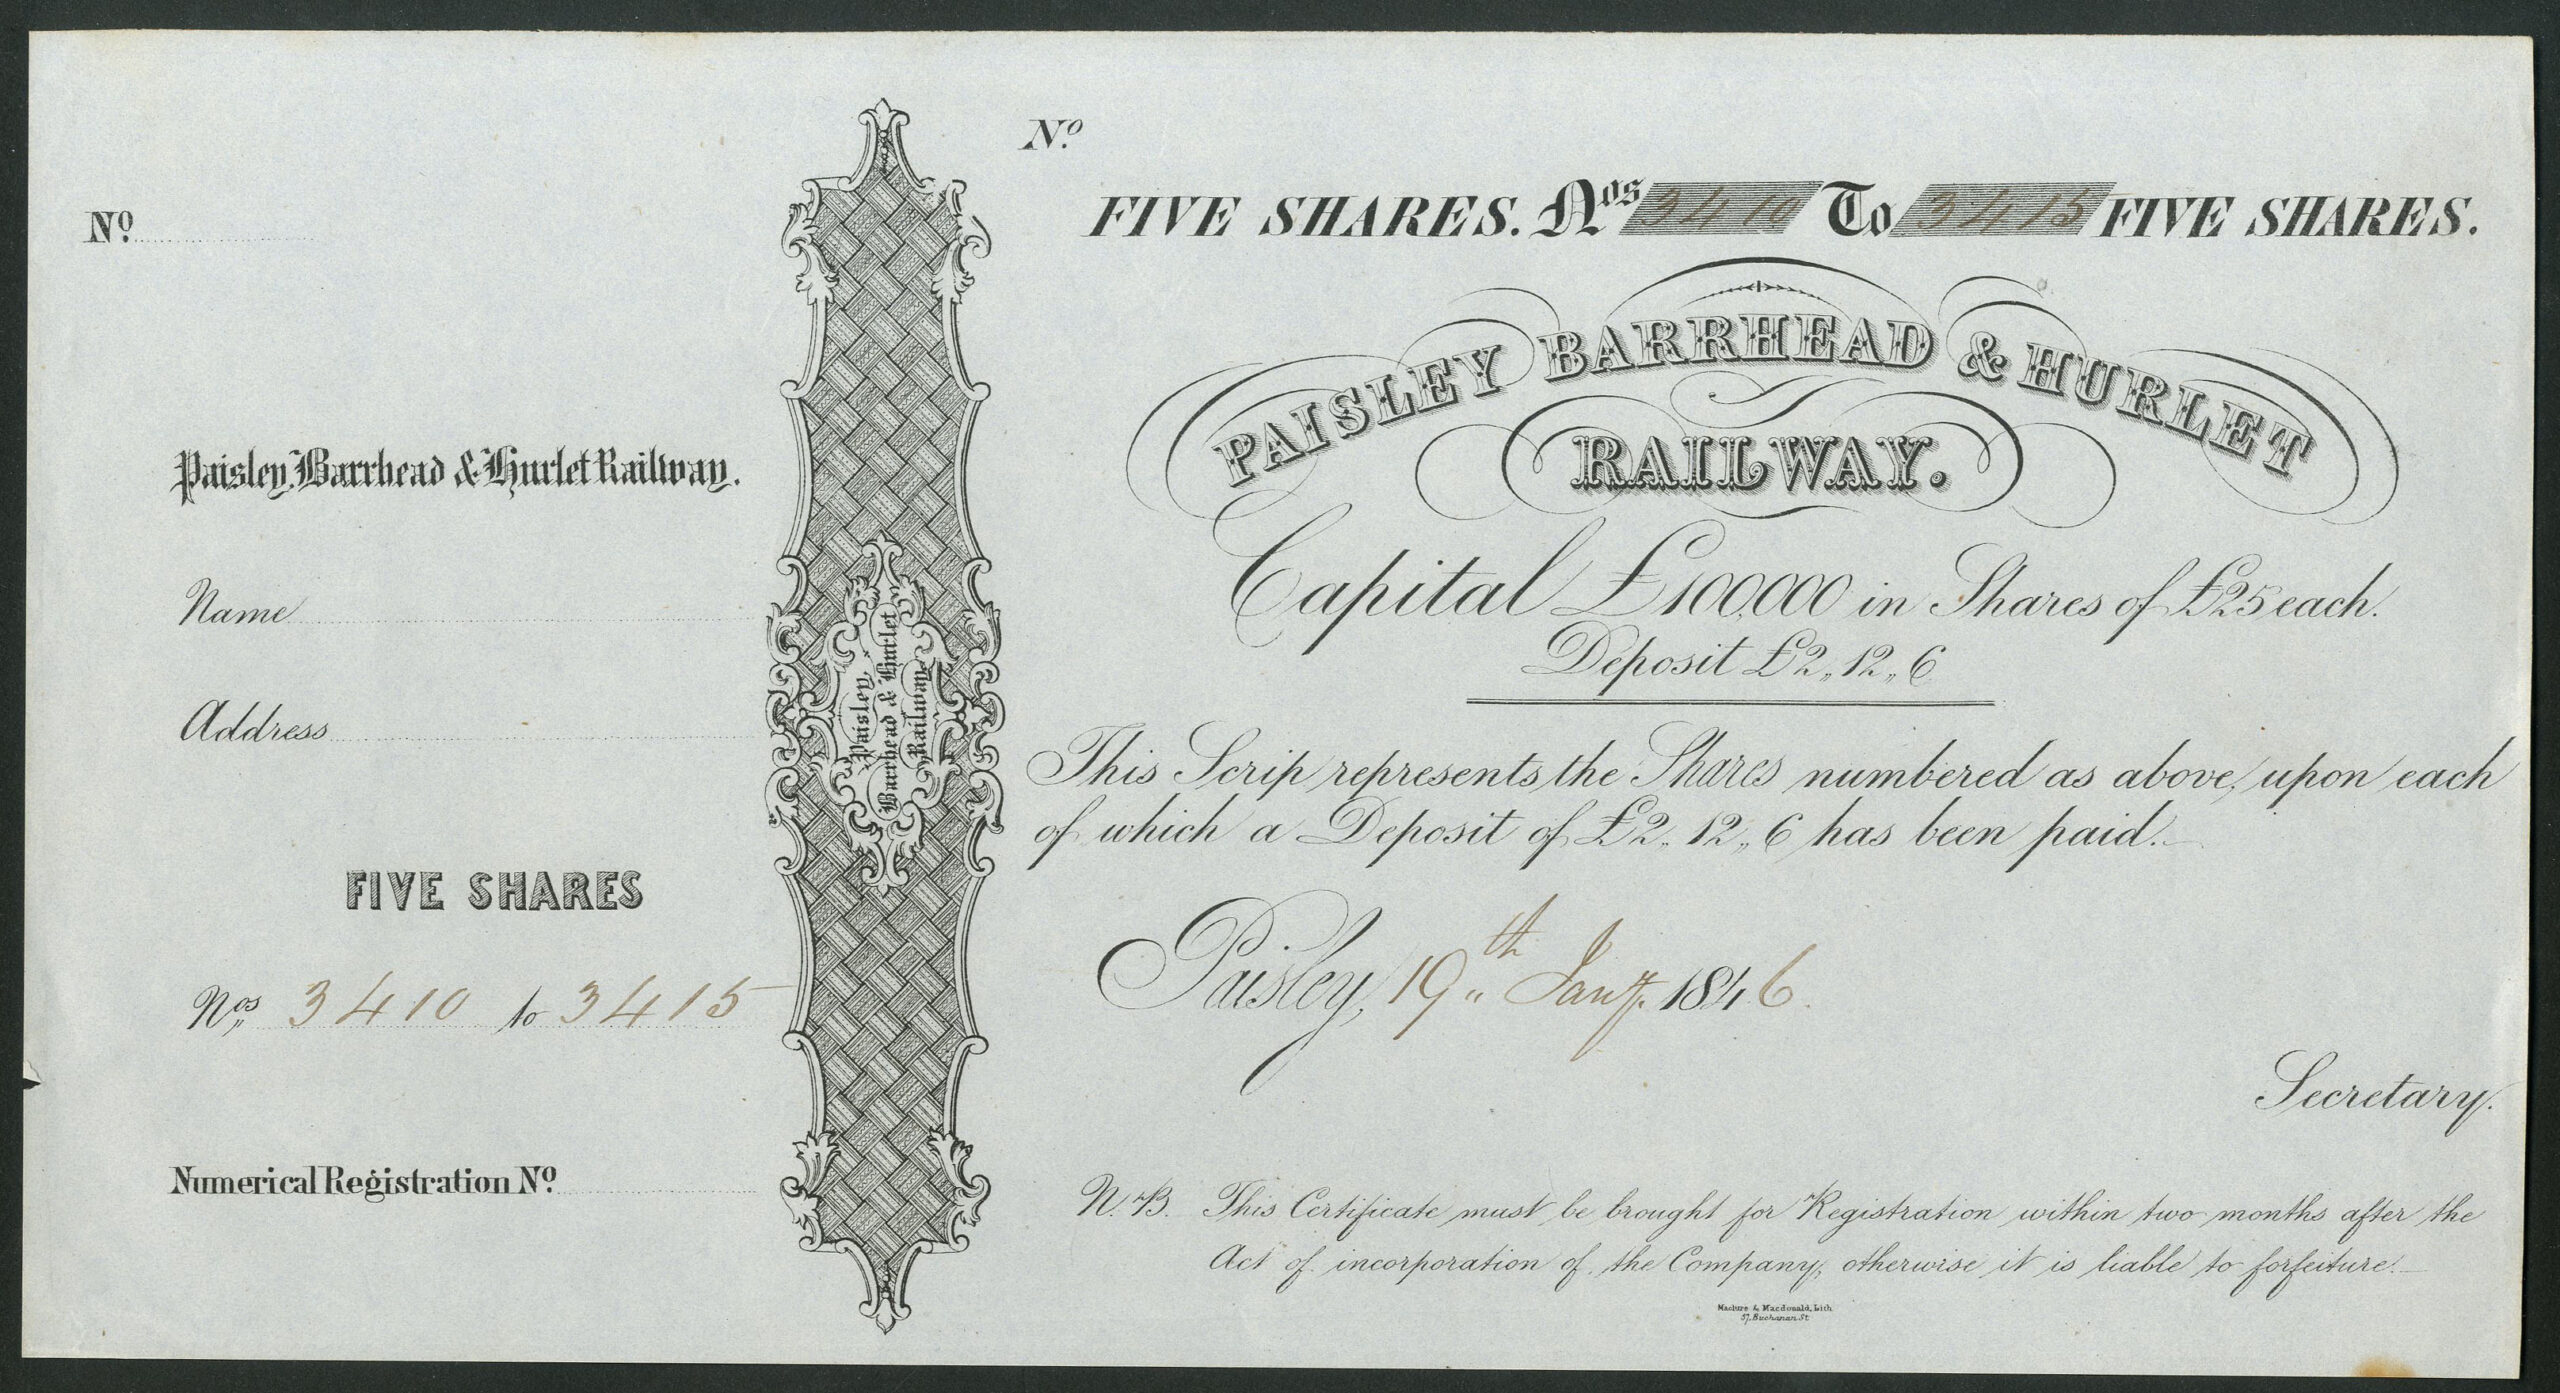 No.
Paisley, Barrhead & Hurlet Railway.
Name
Address
FIVE SHARES
Nos. 3410 to 3415
Numerical Registration No.
Paisley,
Barrhead & Hurlet
Railway.
No.
FIVE SHARES. Nos 3410 To 3415 FIVE SHARES.
PAISLEY BARRHEAD & HURLET
RAILWAY.
Capital £100,000 in Shares of £25 each.
Deposit £2,, 12,, 6
This Scrip represents the Shares numbered as above, upon each
of which a Deposit of £2,, 12,, 6 has been paid.
Paisley, 19th Jany. 1846.
Secretary.
N.B. This Certificate must be brought for Registration within two months after the
Act of incorporation of the Company, otherwise it is liable to forfeiture.
Maclure & Macdonald, Lith.
57, Buchanan St.